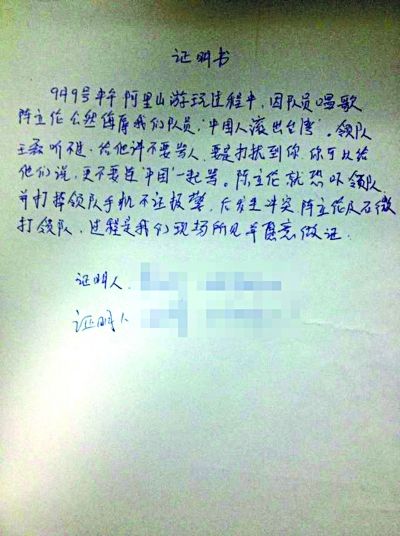 证明书
9月9号中午阿里山游玩过程中,因队员唱歌
陈立伦公然侮辱我们队员,“中国人滚出台湾”。领队
王磊听不过,给他讲不要骂人,要是打扰到你,你可以给
他们说,更不要连“中国”一起骂。陈立伦就恐吓领队,
并打掉领队手机不让报警,后发生冲突陈立伦及石
打领队,过程是我们现场所见并愿意做证.
证明人.
证明人